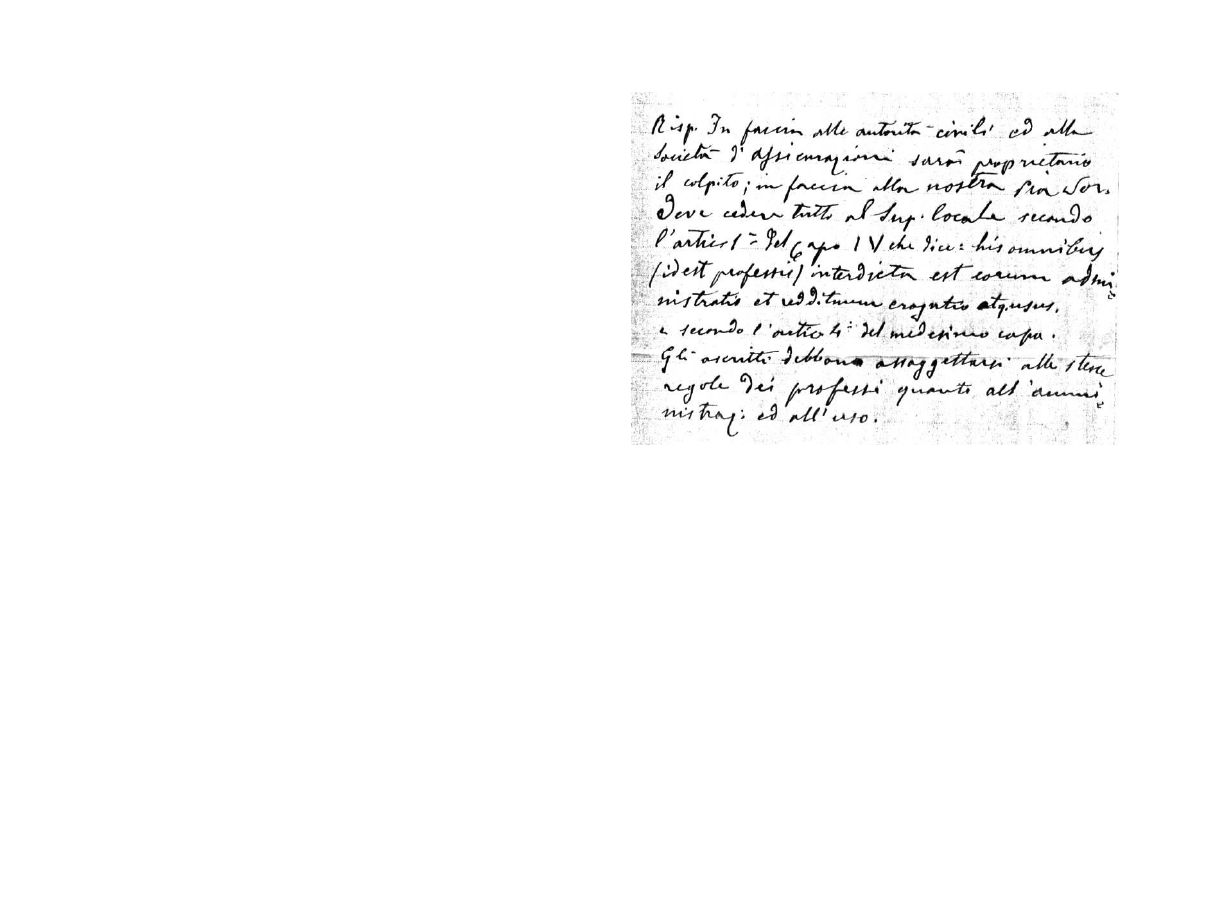 Risp. In faccia alle autorità civili ed alla
Società d'Assicurazioni sarà proprietario
il colpito; in faccia alla nostra Pia Soc.
Deve cedere tutto al Sup. locale secondo
l'artic 1° del Capo IV che dice: his omnibus
(idest professis) interdicta est eorum admi=
nistratio et reddituum erogatio atq. usus.
e secondo l'artico 4° del medesimo capo.
Gli ascritti debbono assoggettarsi alle stesse
regole dei professi quanto all'ammi=
nistraz: ed all'uso.